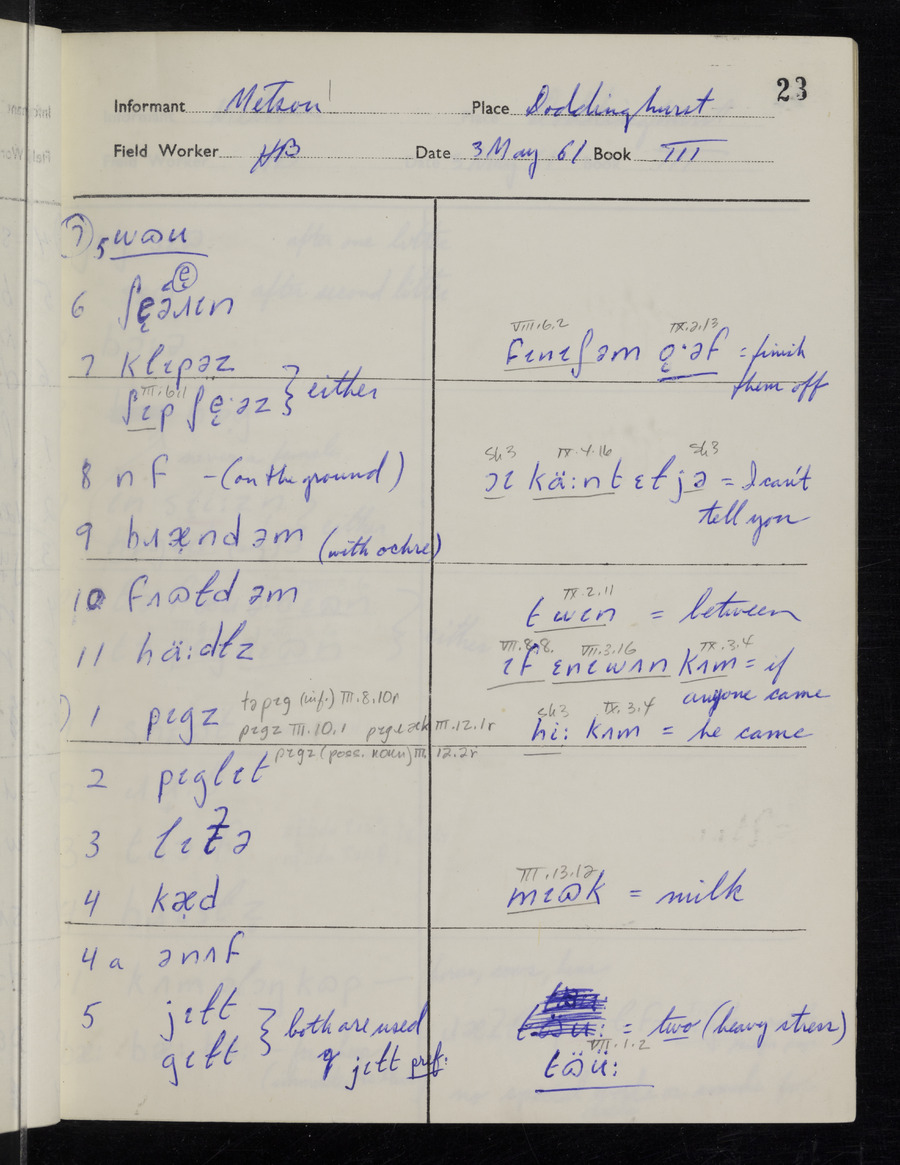 23
Informant Metson Place Doddinghurst
Field Worker HB Date 3 May 61 Book III
7) 5 wɷu
6
7 klɪpəz
III.6.1
ʃɪp ʃę·əz } either
8 nf - (on the ground)
9 bɹæ̣nd əm (with ochre)
10 fɹɷɫd əm
11 hä:dɫz
) 1 pɪgz təpɪg (inf.) III.8.10r
pɪgz III.10.1 III.12.1r
pɪgz (poss. noun) III.12.2r
2 pɪglɪt
3
4 kæ̣d
4a ənʌf
5 jɪɫt
gɪɫt } both are used
jɪɫt pref:
VIII.6.2 IX.2.13
fɪnɪʃ əm ǫ·əf = finish
them off
Sh3 IX.4.16 Sh3
əɪ kä:nt ɛɫ jə = I can't
tell you
IX.2.11
twɪn = between
VII.8.8. VII.3.16 IX.3.4
ɪf ɛnɪwʌn kʌm = if
anyone came
sh3 IX.3.4
hi: kʌm = he came
III.13.12
mɪɷk = milk
= two (heavy stress)
VII.1.2
tɷ̈ü: